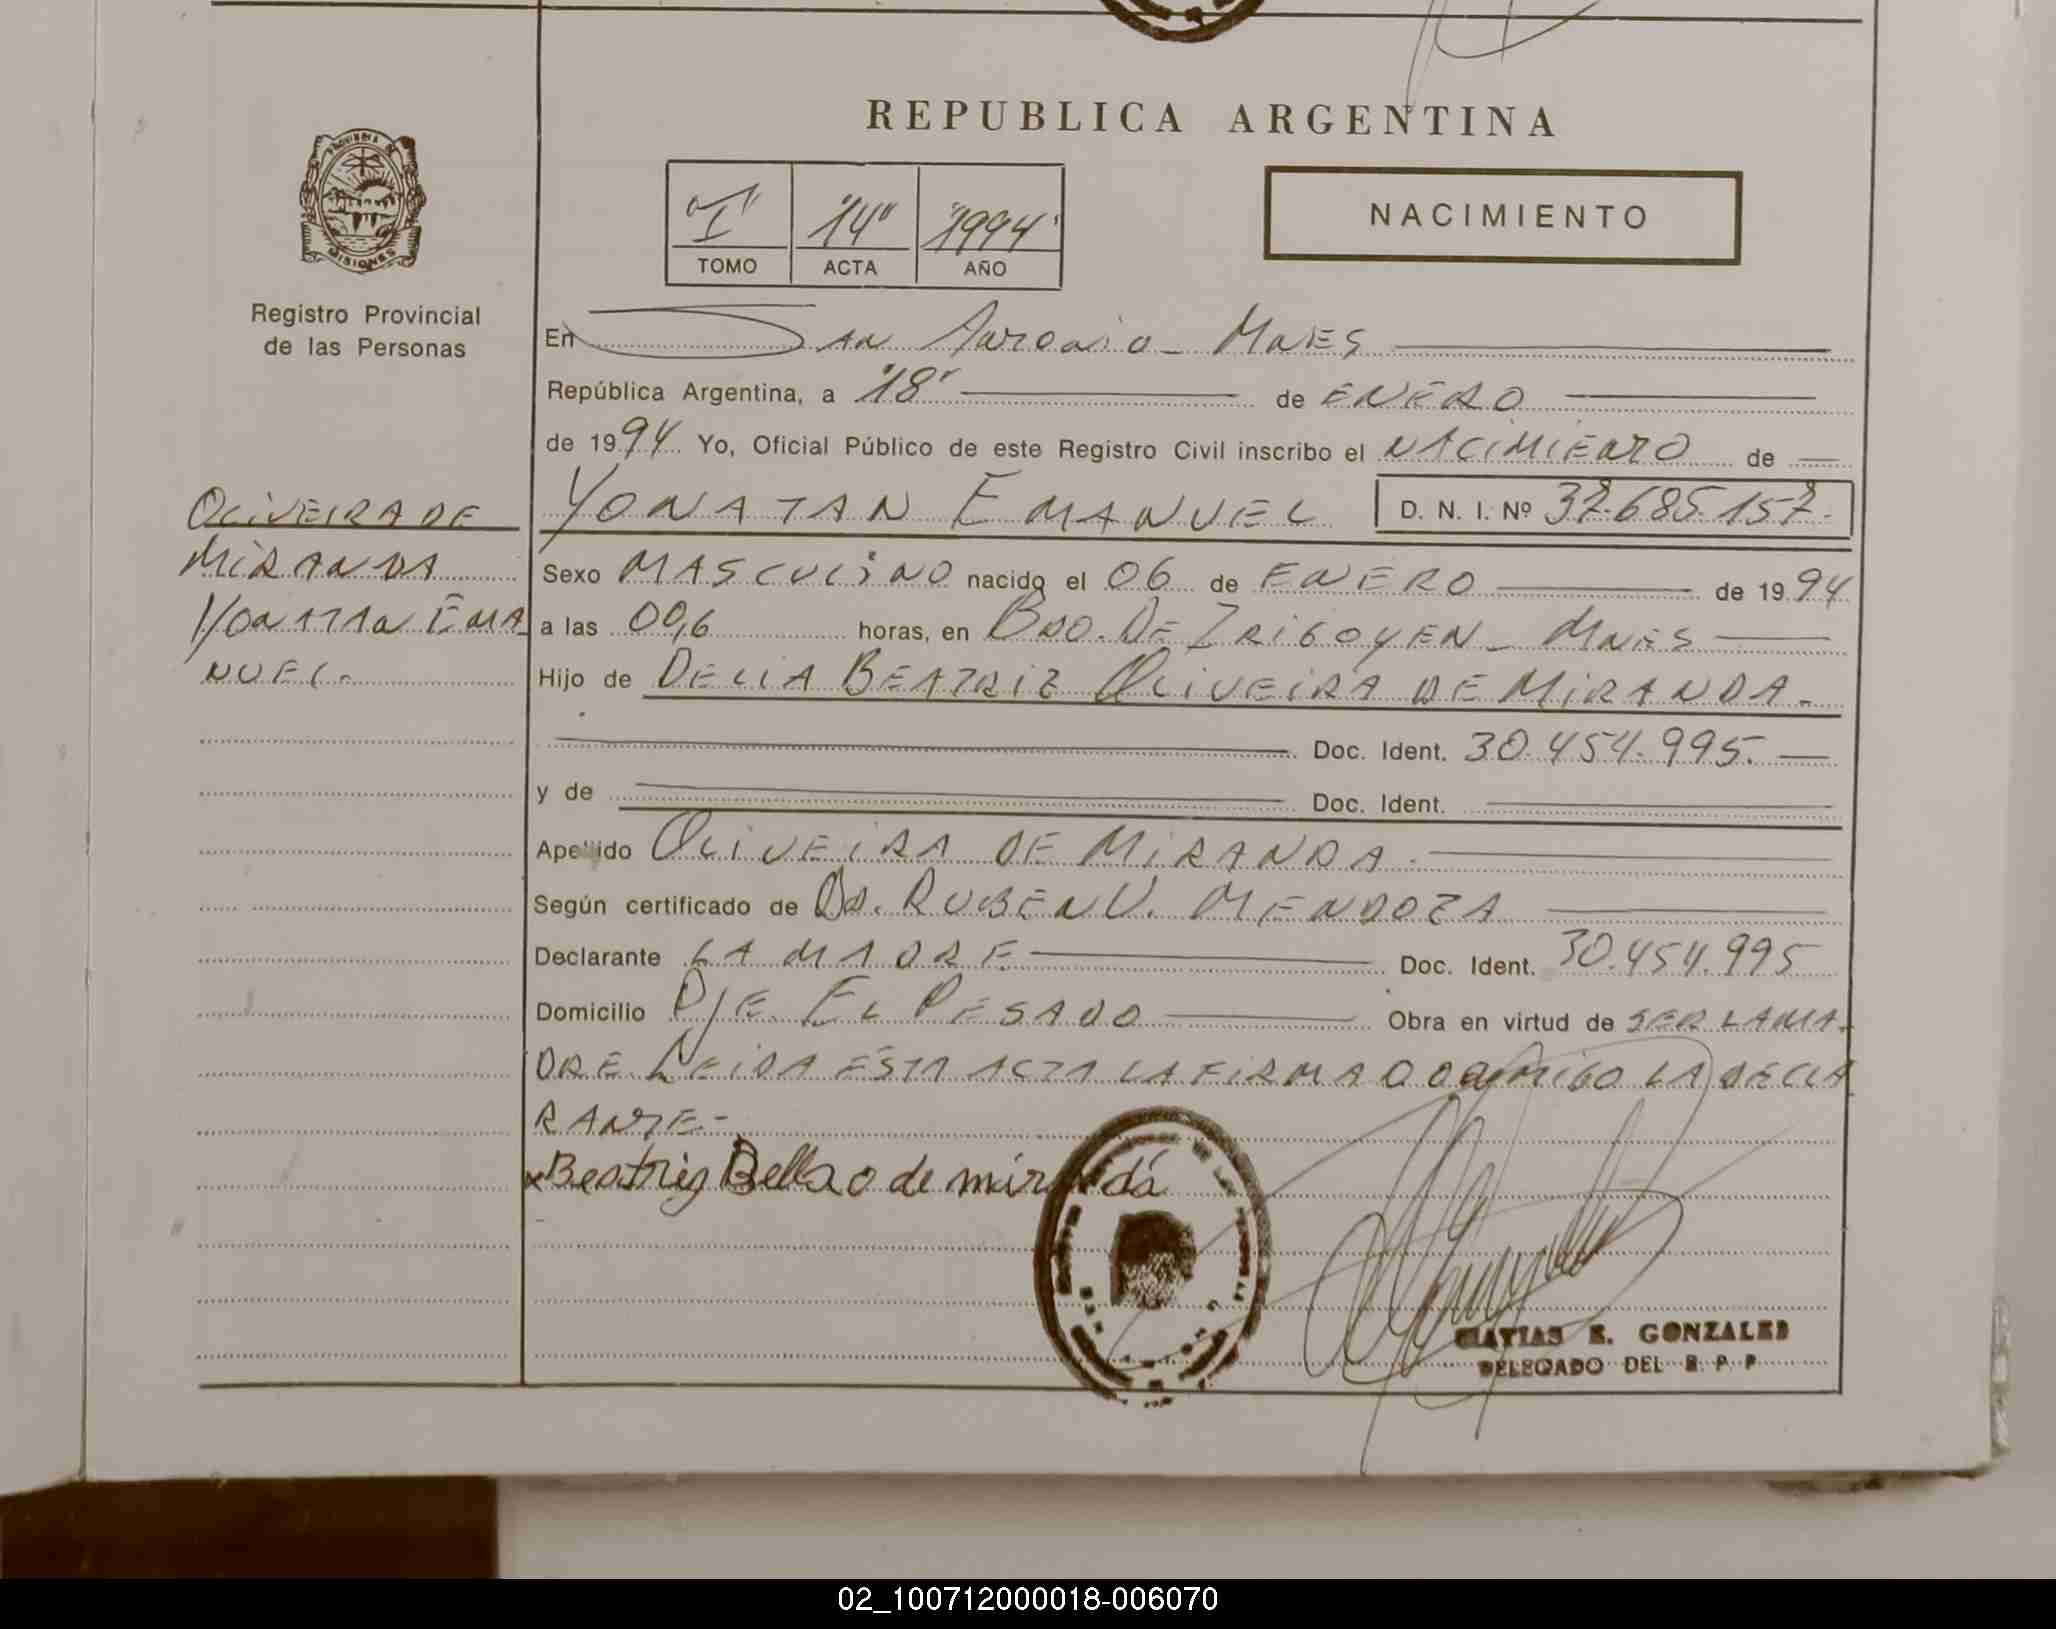 REPUBLICA ARGENTINA
PROVINCIA DE
MISIONES
Registro Provincial
de las Personas
"I" "14" "1994"
TOMO ACTA AÑO
NACIMIENTO
En San Antonio - Mnes
República Argentina, a "18" de ENERO
de 1994 Yo, Oficial Público de este Registro Civil inscribo el NACIMIENTO de
OLIVEIRA DE
MIRANDA
YONATAN EMA
NUEL.
YONATAN EMANUEL D. N. I. Nº 37.685.157.
Sexo MASCULINO nacido el 06 de ENERO de 1994
a las 00,6 horas, en BDO. DE IRIGOYEN - MNES
Hijo de DELIA BEATRIZ OLIVEIRA DE MIRANDA.
Doc. Ident. 30.454.995.
y de Doc. Ident.
Apellido OLIVEIRA DE MIRANDA.
Según certificado de DR. RUBEN V. MENDOZA
Declarante LA MADRE Doc. Ident. 30.454.995
Domicilio PJE EL PESADO Obra en virtud de SER LA MA-
DRE LEIDA ESTA ACTA LA FIRMADO CONMIGO LA DECLA
RANTE-
x Beatriz Bella o de mirandá
MATIAS E. GONZALES
DELEGADO DEL R. P. P
02_100712000018-006070